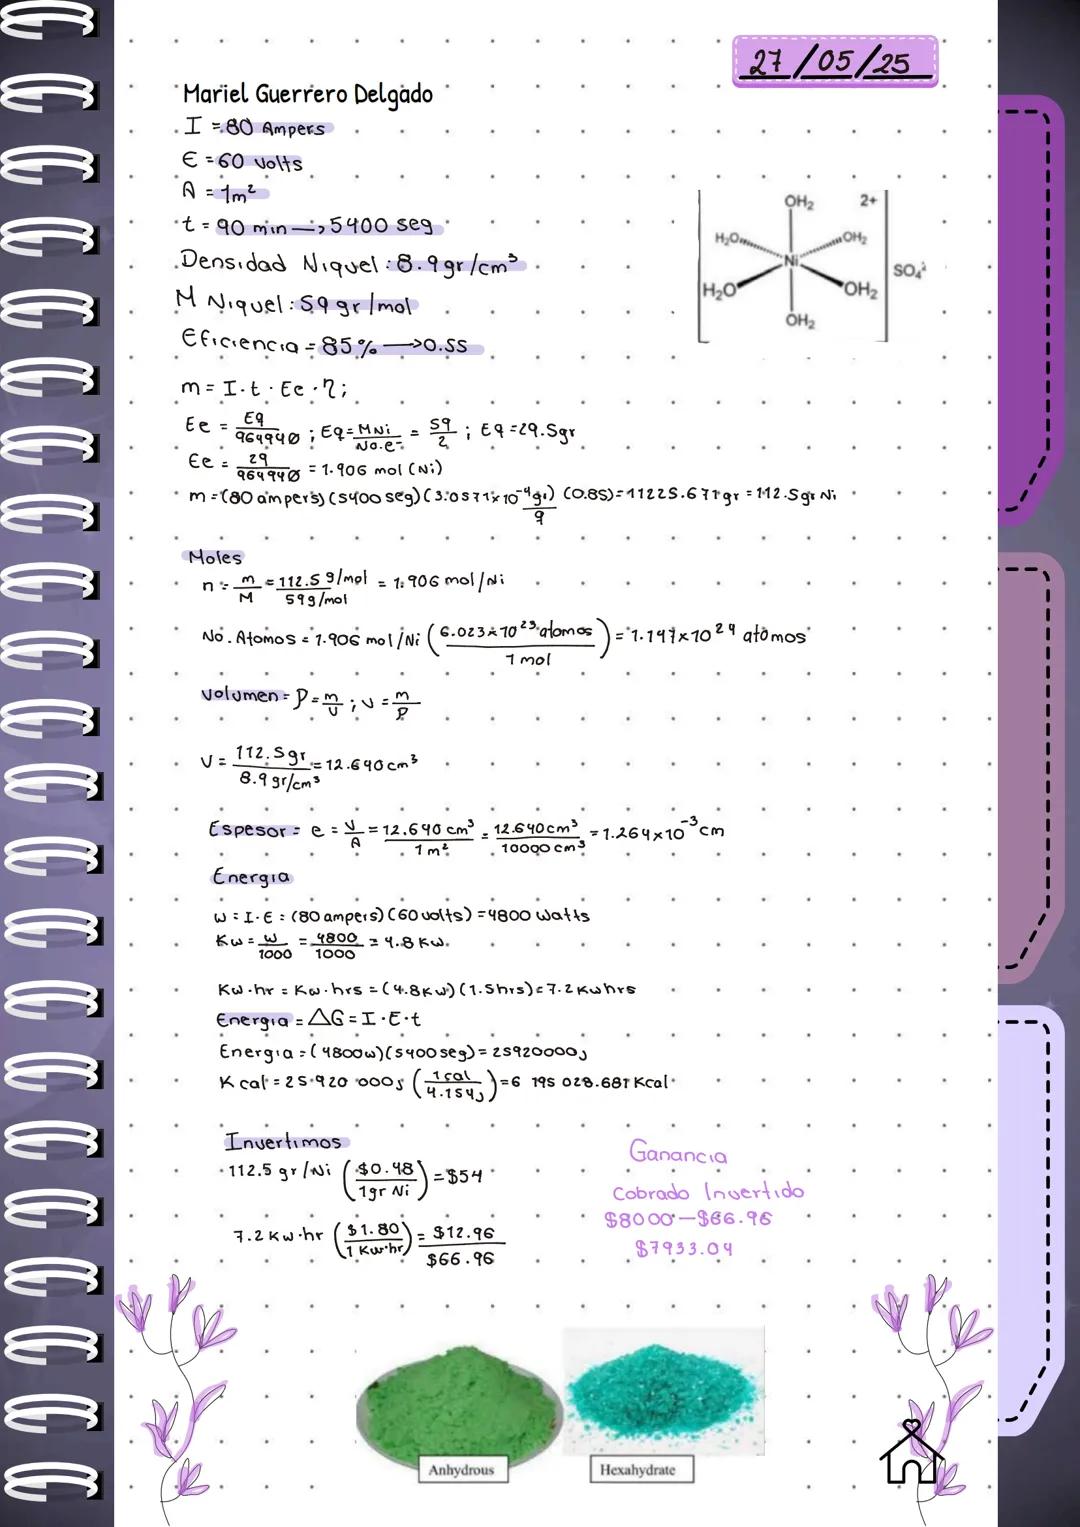 27/05/25
Mariel Guerrero Delgado
I = 80 Ampers
E = 60 volts
A = 1m²
t = 90 min —> 5400 seg
Densidad Niquel: 8.9gr/cm³
M Niquel: 59 gr/mol
Eficiencia = 85% —>0.55
m = I·t·Ee·η;
Ee = Eq/964940 ; Eq = MNi/No.e- = 59/2 ; Eq = 29.5gr
Ee = 29/964940 = 1.906 mol (Ni)
m = (80 ampers)(5400 seg)(3.0571x10⁻⁴gr/q)(0.85) = 11225.671gr = 112.5gr Ni
Moles
n = m/M = 112.5 g/mol / 59g/mol = 1.906 mol/Ni
No. Atomos = 1.906 mol/Ni (6.023x10²³ atomos / 1 mol) = 1.147x10²⁴ atomos
Volumen = P = m/v ; v = m/P
V = 112.5gr / 8.9gr/cm³ = 12.640cm³
Espesor = e = V/A = 12.640 cm³ / 1m² = 12.640cm³ / 10000 cm³ = 1.264x10⁻³cm
Energia
W = I·E = (80 ampers)(60 volts) = 4800 Watts
Kw = W/1000 = 4800/1000 = 4.8 Kw.
Kw·hr = Kw·hrs = (4.8Kw)(1.5hrs) = 7.2 Kwhrs
Energia = △G = I·E·t
Energia = (4800w)(5400seg) = 25920000J
K cal = 25 920 000J (1cal / 4.154J) = 6 195 028.681 Kcal
Invertimos
112.5 gr/Ni ($0.48 / 1gr Ni) = $54
7.2 Kw·hr ($1.80 / 1 Kw·hr) = $12.96
$66.96
Ganancia
Cobrado Invertido
$8000 — $66.96
$7933.04
OH₂
2+
H₂O
OH₂
Ni
SO₄²⁻
H₂O
OH₂
OH₂
Anhydrous
Hexahydrate